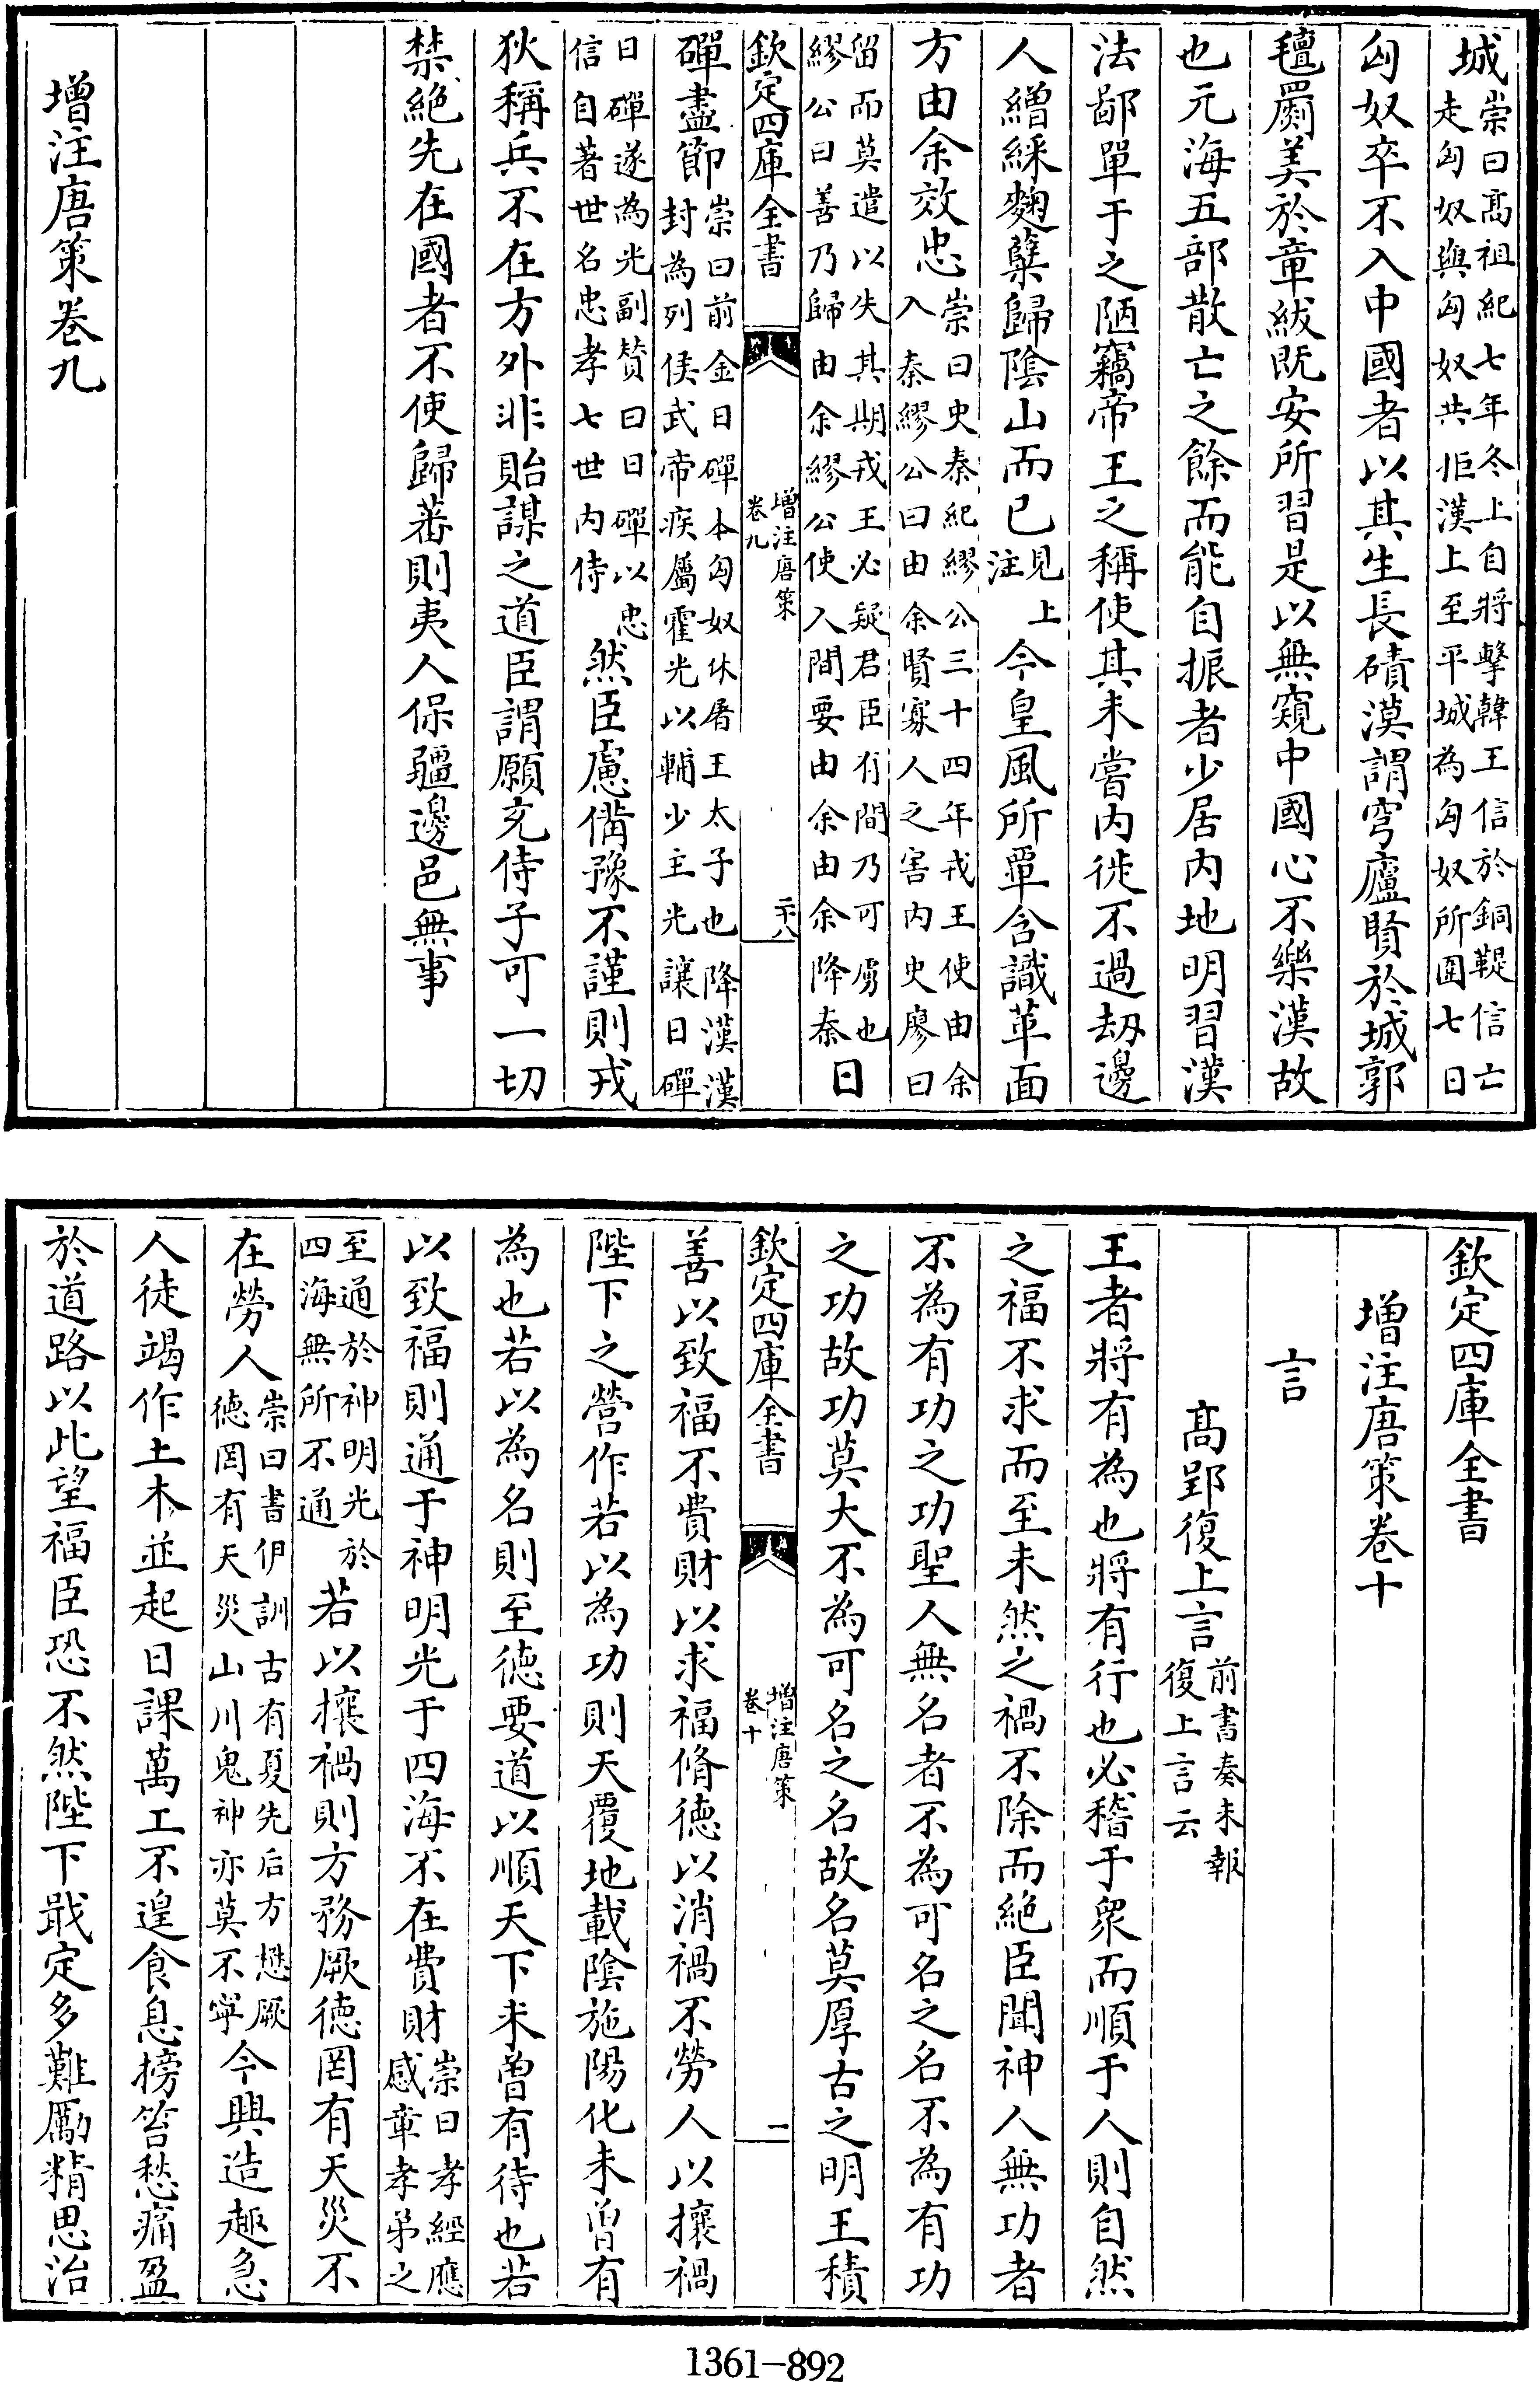 城崇曰高祖紀七年冬上自將擊韓王信於銅鞮信亡
走匈奴與匈奴共拒漢上至平城為匈奴所圍七日
匈奴卒不入中國者以其生長磧漠謂穹廬賢於城郭
氊罽美於章紱既安所習是以無窺中國心不樂漢故
也元海五部散亡之餘而能自振者少居内地明習漢
法鄙單于之陋竊帝王之稱使其未嘗内徙不過刼邊
人繒綵麴蘖歸陰山而已見上
注今皇風所覃含識革面
方由余效忠崇曰史秦紀繆公三十四年戎王使由余
入秦繆公曰由余賢寡人之害内史廖曰
留而莫遣以失其期戎王必疑君臣有間乃可虜也
繆公曰善乃歸由余繆公使人間要由余由余降秦日
欽定四庫全書
增注唐策
卷九
二十八
磾盡節崇曰前金日磾本匈奴休屠王太子也降漢漢
封為列侯武帝疾屬霍光以輔少主光讓日磾
日磾遂為光副賛曰日磾以忠
信自著世名忠孝七世内侍然臣慮備豫不謹則戎
狄稱兵不在方外非貽謀之道臣謂願充侍子可一切
禁絶先在國者不使歸蕃則夷人保疆邊邑無事
增注唐策卷九
欽定四庫全書
增注唐策卷十
言
高郢復上言前書奏未報
復上言云
王者將有為也將有行也必稽于衆而順于人則自然
之福不求而至未然之禍不除而絶臣聞神人無功者
不為有功之功聖人無名者不為可名之名不為有功
之功故功莫大不為可名之名故名莫厚古之明王積
欽定四庫全書
增注唐策
卷十
一
善以致福不費財以求福脩德以消禍不勞人以攘禍
陛下之營作若以為功則天覆地載陰施陽化未曾有
為也若以為名則至德要道以順天下未曾有待也若
以致福則通于神明光于四海不在費財崇曰孝經應
感章孝弟之
至通於神明光於
四海無所不通若以攘禍則方務厥德罔有天災不
在勞人崇曰書伊訓古有夏先后方懋厥
德罔有天災山川鬼神亦莫不寧今興造趣急
人徒竭作土木並起日課萬工不遑食息搒笞愁痛盈
於道路以此望福臣恐不然陛下戢定多難勵精思治
1361-892